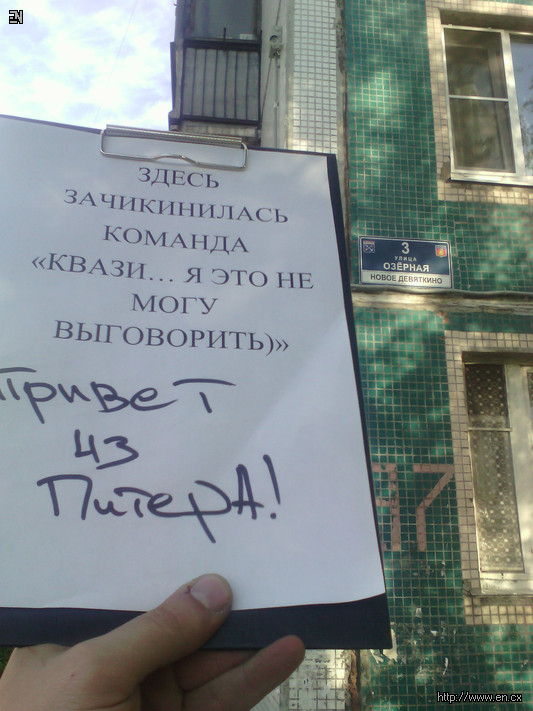 EN
ЗДЕСЬ
ЗАЧИКИНИЛАСЬ
КОМАНДА
«КВАЗИ... Я ЭТО НЕ
МОГУ
ВЫГОВОРИТЬ)»
Привет
из
Питера!
3
УЛИЦА
ОЗЁРНАЯ
НОВОЕ ДЕВЯТКИНО
97
http://www.en.cx